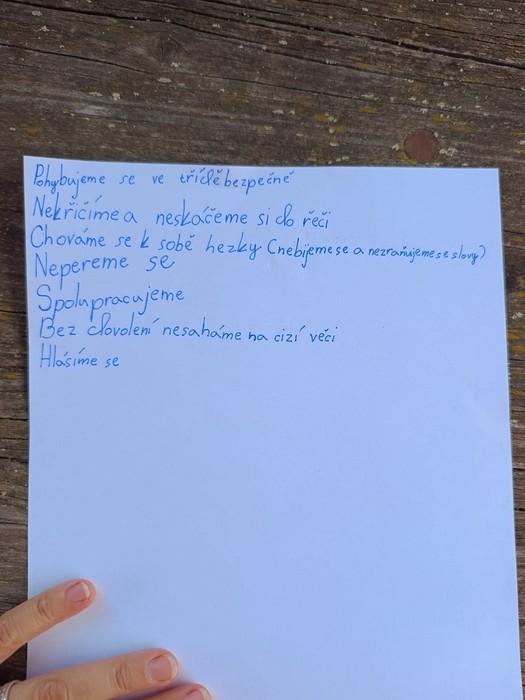 Pohybujeme se ve třídě bezpečně
Nekřičíme a neskáčeme si do řeči
Chováme se k sobě hezky (nebijeme se a nezraňujeme se slovy)
Nepereme se
Spolupracujeme
Bez dovolení nesaháme na cizí věci
Hlásíme se